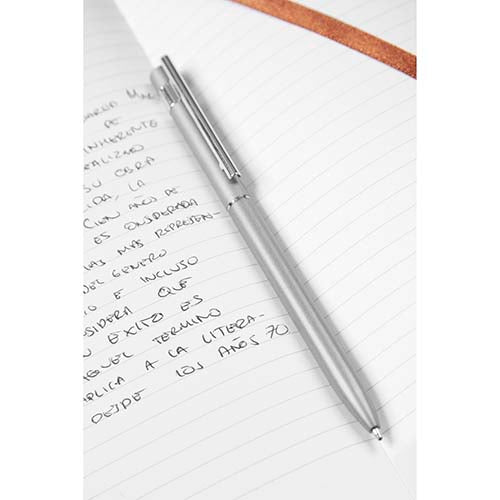 GARCÍA MAR
DE
INHERENTE
REALIZMO
SU OBRA
IDA, LA
CIEN AÑOS DE
ES ONSIDERADA
LAS MAS REPRESEN-
DEL GENERO
O E INCLUSO
NSIDERA QUE
U EXITO ES
AQUEL TERMINO
APLICA A LA LITERA-
DESDE LOS AÑOS 70.